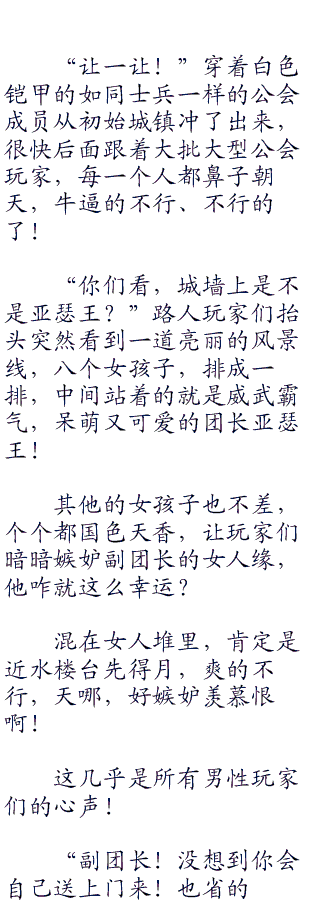 “让一让！”穿着白色
铠甲的如同士兵一样的公会
成员从初始城镇冲了出来，
很快后面跟着大批大型公会
玩家，每一个人都鼻子朝
天，牛逼的不行、不行的
了！
“你们看，城墙上是不
是亚瑟王？”路人玩家们抬
头突然看到一道亮丽的风景
线，八个女孩子，排成一
排，中间站着的就是威武霸
气，呆萌又可爱的团长亚瑟
王！
其他的女孩子也不差，
个个都国色天香，让玩家们
暗暗嫉妒副团长的女人缘，
他咋就这么幸运？
混在女人堆里，肯定是
近水楼台先得月，爽的不
行，天哪，好嫉妒羡慕恨
啊！
这几乎是所有男性玩家
们的心声！
“副团长！没想到你会
自己送上门来！也省的